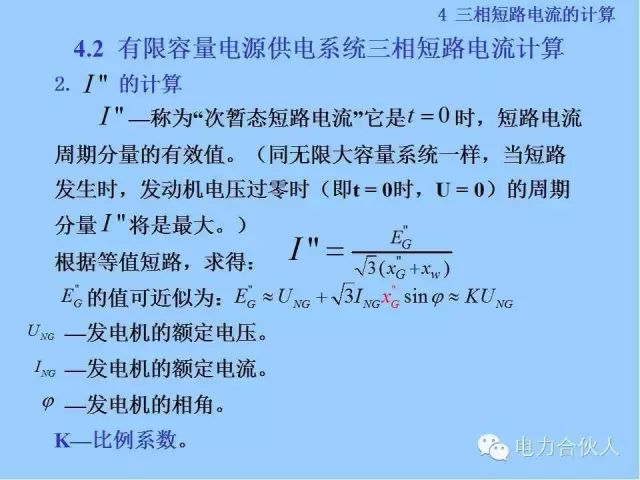 4 三相短路电流的计算
4.2 有限容量电源供电系统三相短路电流计算
2. I" 的计算
I"—称为“次暂态短路电流”它是t = 0时，短路电流
周期分量的有效值。（同无限大容量系统一样，当短路
发生时，发动机电压过零时（即t = 0时，U = 0）的周期
分量 I" 将是最大。）
根据等值短路，求得： I" = E"G / √3(x"G + xw)
E"G 的值可近似为：E"G ≈ UNG + √3INGx"G sin φ ≈ KUNG
UNG —发电机的额定电压。
ING —发电机的额定电流。
φ —发电机的相角。
K—比例系数。
电力合伙人